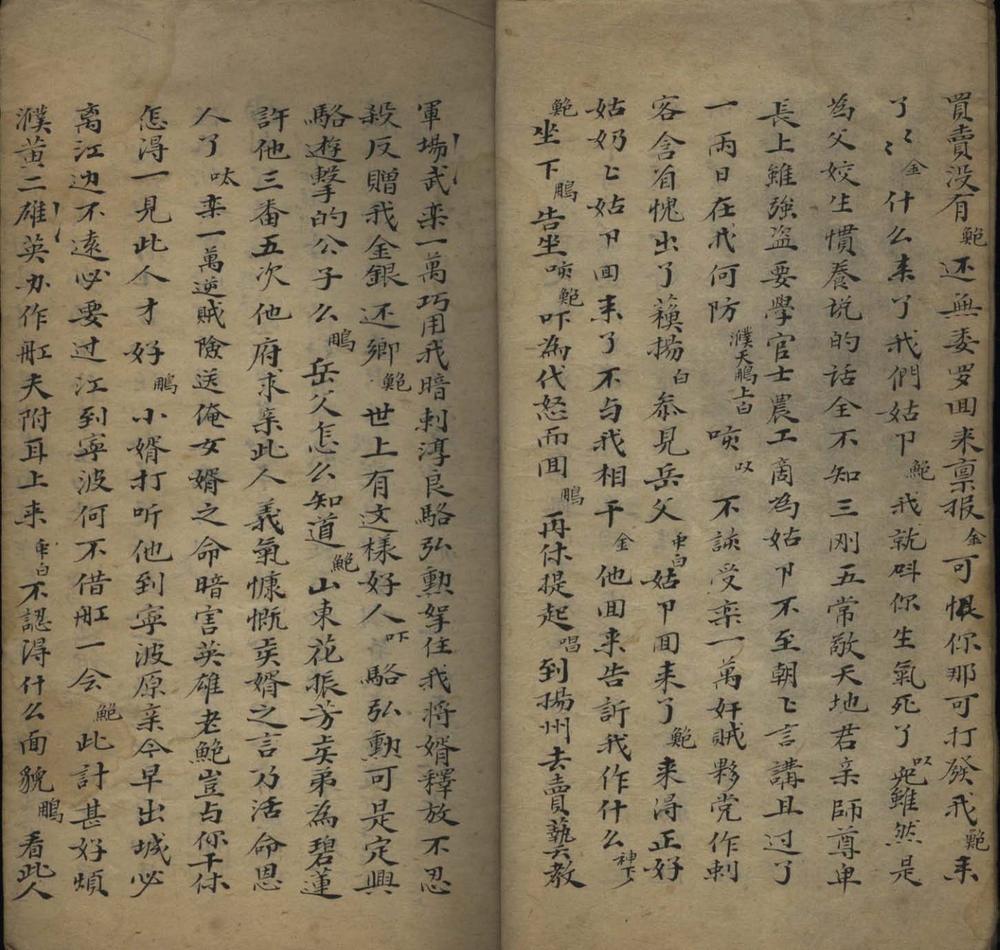 買賣没有鮑还無委罗囬来禀报金可恨你那可打發我鮑来
了〻金什么来了我們姑卩鮑我就呌你生氣死了以兜雖然是
為父姣生慣養说的话全不知三刚五常敬天地君亲師尊卑
長上雖強盗要學官士農工商為姑卩不至朝〻言講且过了
一両日在我何防濮天鵬上白唝以不談受栾一萬奸賊夥党作刺
客含羞愧出了蘓揚白叅見岳父申白姑卩囬来了鮑来得正好
姑奶〻姑卩囬来了不与我相干金他囬来告訴我作什么神下
鮑坐下鵬告坐唝鮑吓為代怒而囬鵬再休提起唱到揚州去賣藝教
軍場武栾一萬巧用我暗刺淳良駱弘勲拏住我將婿釋放不忍
殺反贈我金銀还鄉鮑世上有这樣好人吓駱弘勲可是定興
駱遊擊的公子么鵬岳父怎么知道鮑山東花振芳賣弟為碧蓮
許他三番五次他府求亲此人義氣慷慨賣婿之言乃活命恩
人了呔栾一萬逆賊險送俺女婿之命暗害英雄老鮑豈与你干休
怎得一見此人才好鵬小婿打听他到寧波原亲今早出城必
离江边不遠必要过江到寧波何不借舡一会鮑此計甚好煩
濮黄二雄英办作舡夫附耳上来申白不認得什么面貌鵬看此人